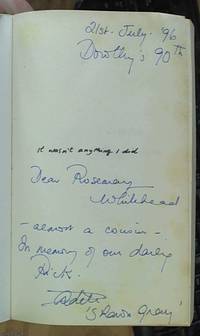 21st. July. '96
Dorothy's 90th
It wasn't anything I did
Dear Rosemary
Whitehead
- almost a cousin -
In memory of our darling
Dick.